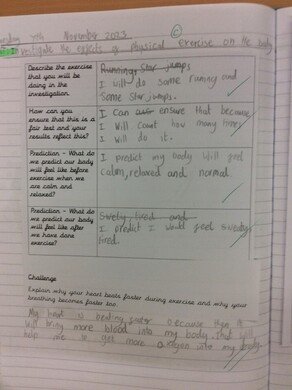 7th November 2023
C
investigate the effects of physical exercise on the body
Describe the exercise
that you will be
doing in the
investigation.
Running Star jumps
I will do some runing and
some Star jumps.
How can you
ensure that this is a
fair test and your
results reflect this?
I can ensure that because
I will count how many times
I will do it.
Prediction - What do
we predict our body
will feel like before
exercise when we
are calm and
relaxed?
I predict my body will feel
calm, relaxed and normal
Prediction - What do
we predict our body
will feel like after
we have done
exercise?
Swety, tired and
I predict I would feel sweaty
tired.
Challenge
Explain why your heart beats faster during exercise and why your
breathing becomes faster too.
My heart is beating faster because then it
will bring more blood into my body. that will
help me to get more oxygen into my body.